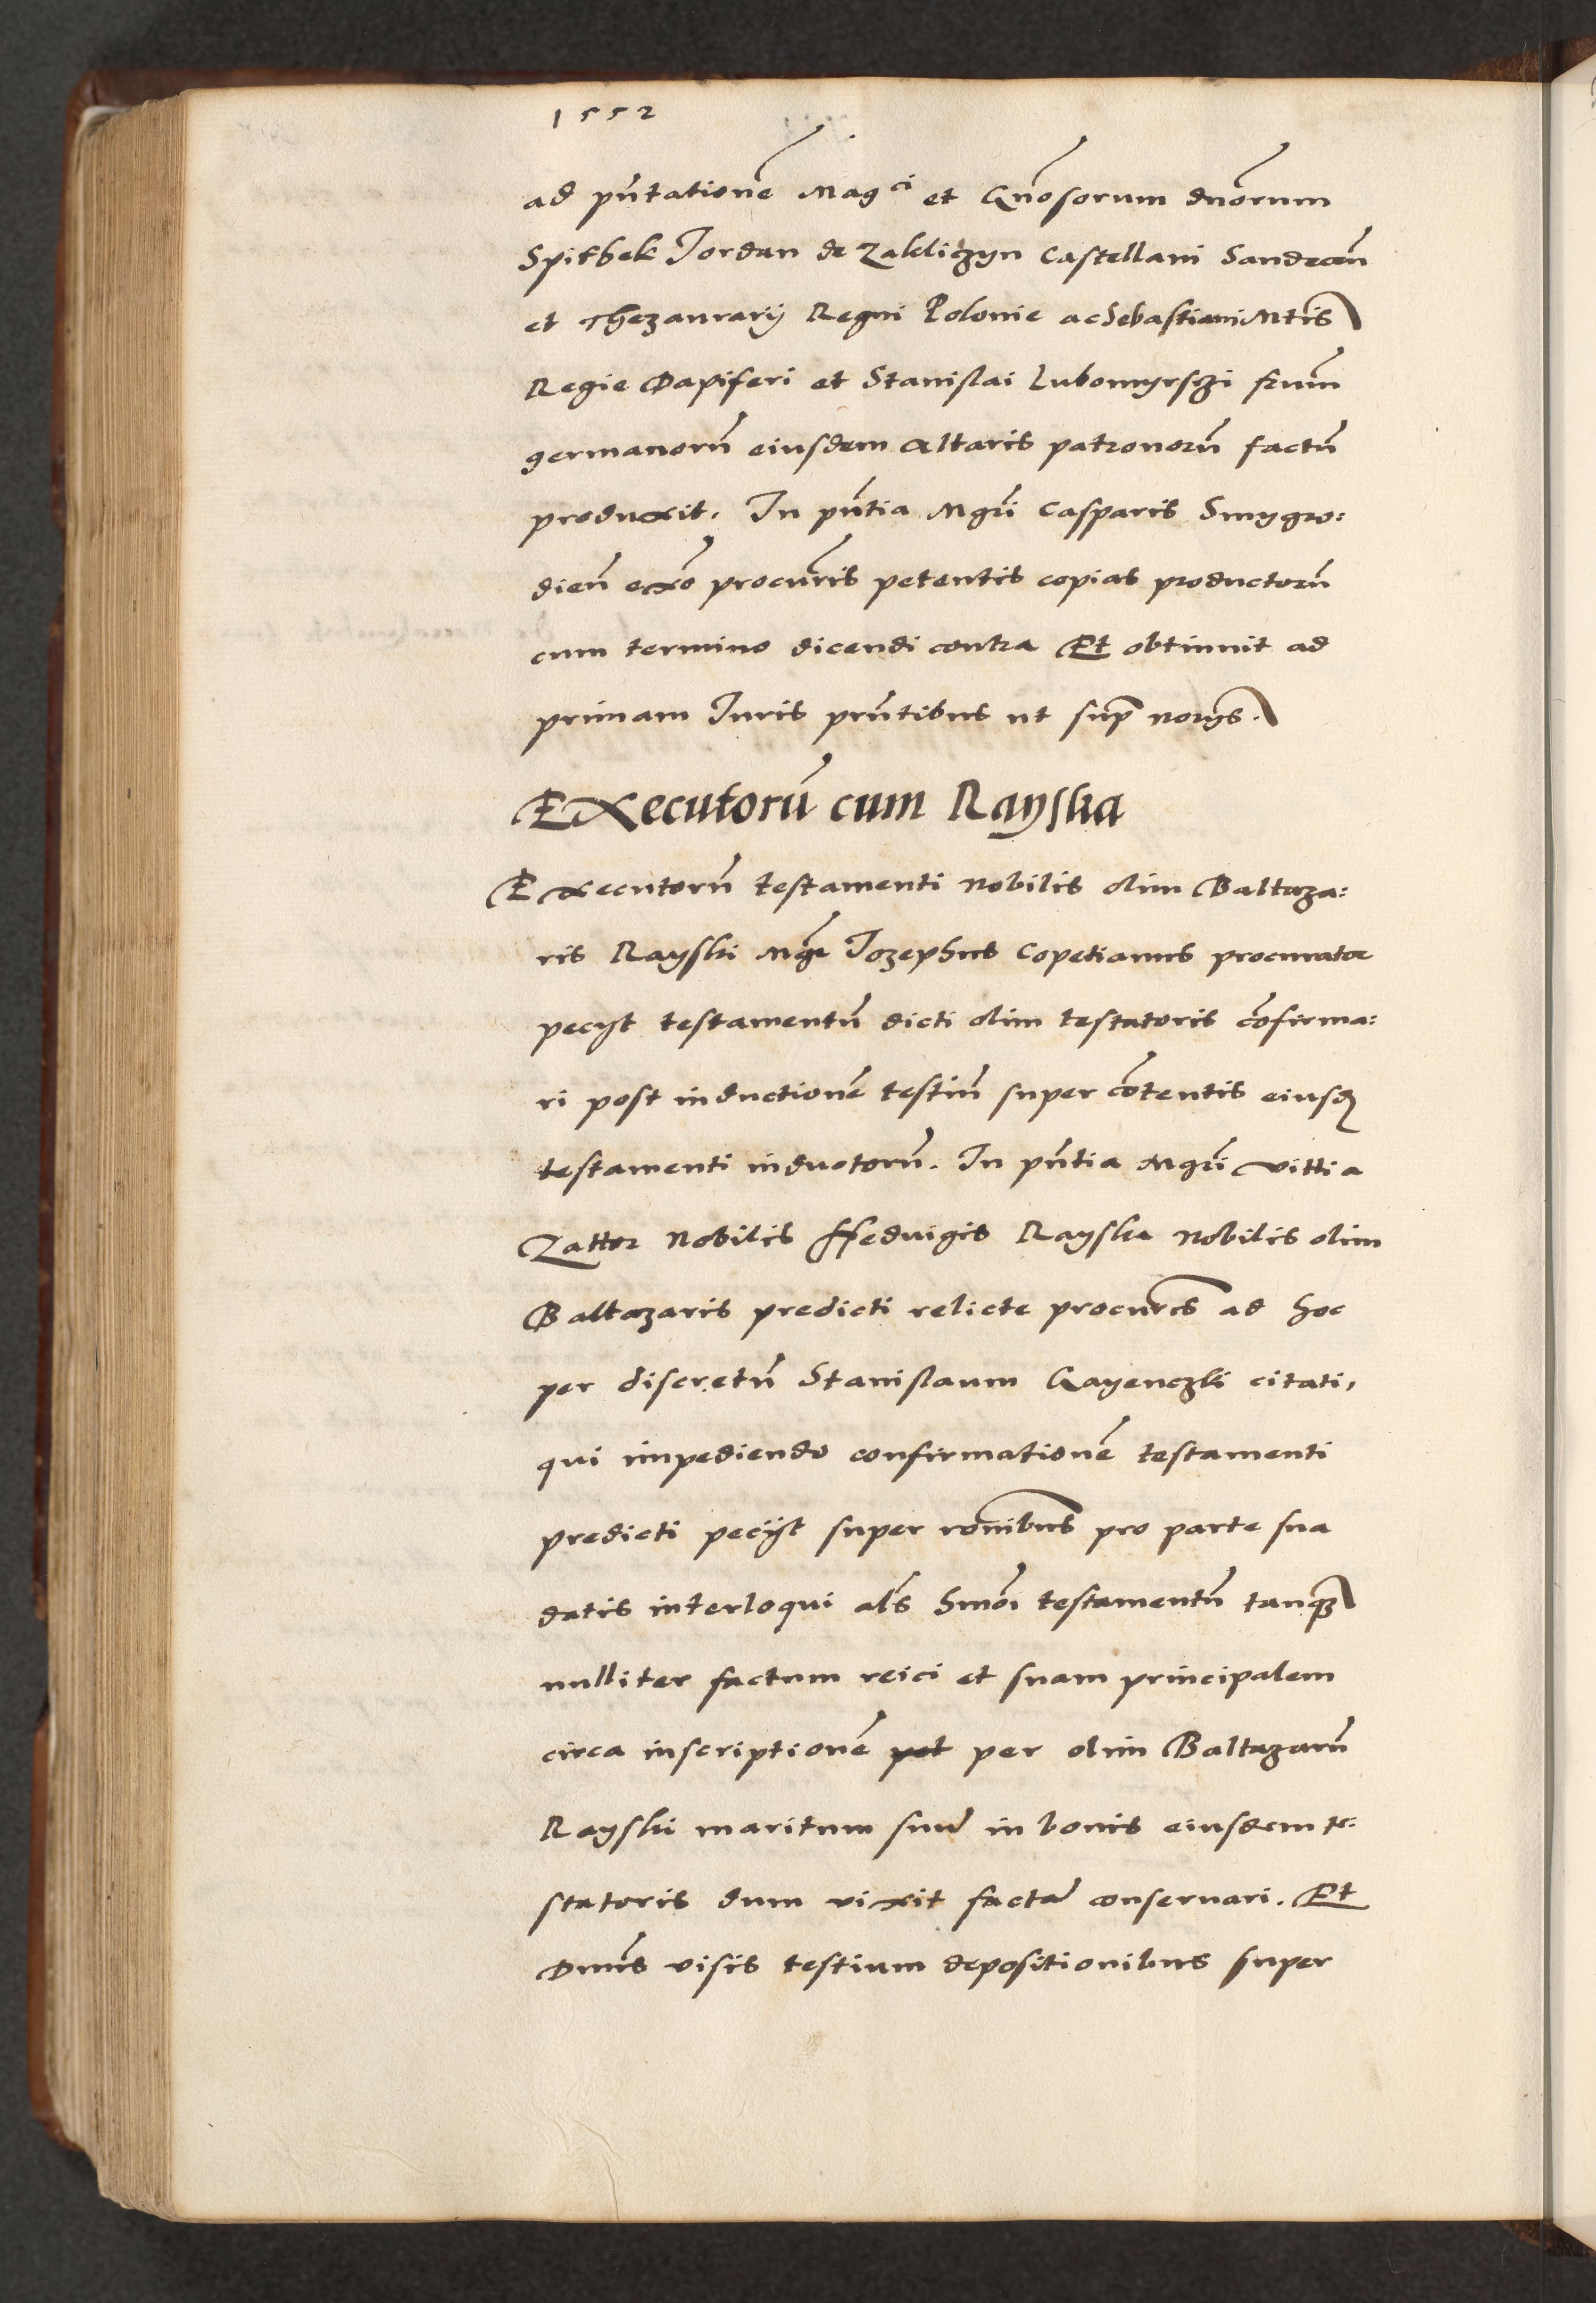 1552
ad pn̄tationē Magci et Gn̄osorum dn̄orum
Spithek Jordan de Zakliczyn Castellani Sandecen̄
et Thezaurarij Regni Polonie ac Sebastiani Mtis
Regie Dapiferi et Stanislai Lubomyrski frum̄
germanorū eiusdem altaris patronorū factū
produxit. In pn̄tia Mgr̄i Casparis Smygro:
dien̄ exō procur̄is petentis copias productorū
cum termino dicendi contra Et obtinuit ad
primam Juris prn̄tibus ut sup̄ norijs.
Executorū cum Rayska
Executorū testamenti nobilis olim Baltaza:
ris Rayski Mgr̄ Jozephus Copetianus procurator
pecijt testamentū dicti olim testatoris cōfirma:
ri post inductionē testiū super cōtentis eiusd
testamenti inductorū. In pn̄tia Mgr̄i Vitti a
Zattor Nobilis Hedvigis Rayska nobilis olim
Baltazaris predicti relicte procur̄is ad hoc
per discretū Stanislaum Gayenczki citati,
qui impediendo confirmationē testamenti
predicti pecijt super ron̄ibus pro parte sua
datis interloqui al̄s hmōi testamentū tanq̄
nulliter factum reici et suam principalem
circa inscriptionē pet per olim Baltazarū
Rayski maritum suū in bonis eiusdem te:
statoris dum vixit factā conservari. Et
Dnu̅s visis testium depositionibus super